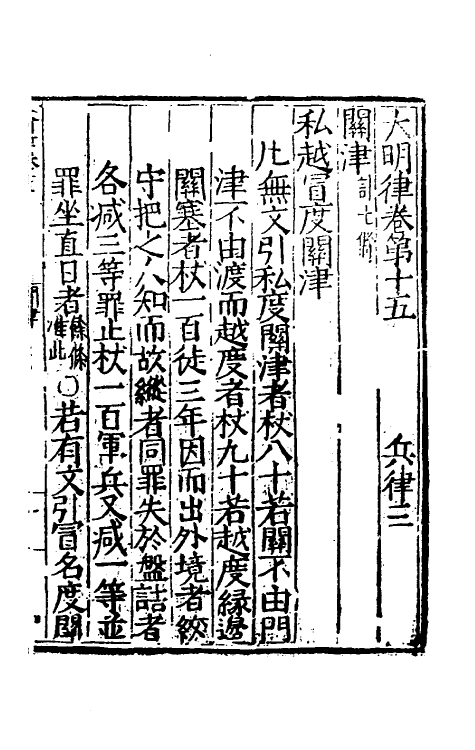 大明律卷第十五　兵律三
關津計七條
私越冒度關津
凡無文引私度關津者杖八十若關不由門
津不由渡而越度者杖九十若越度緣邊
關塞者杖一百徒三年因而出外境者絞
守把之人知而故縱者同罪失於盤詰者
各减三等罪止杖一百軍兵又减一等並
罪坐直日者餘條准此〇若有文引冒名度關